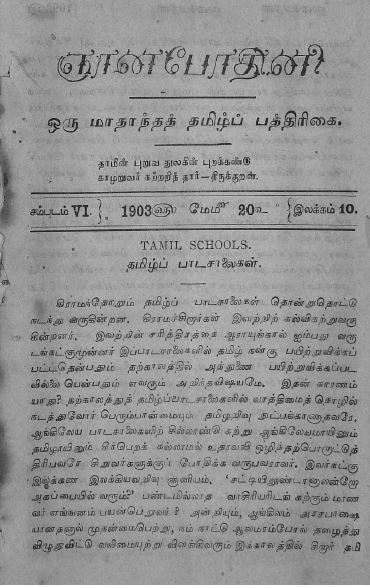 ஞானபோதினி.
ஒரு மாதாந்தத் தமிழ்ப் பத்திரிகை.
தாமின் புறுவ துலகின் புறக்கண்டு
காமுறுவர் கற்றறிந் தார்—திருக்குறள்.
சம்புடம் VI. } 1903 ௵ மேமீ 20௳ { இலக்கம் 10.
TAMIL SCHOOLS.
தமிழ்ப் பாடசாலைகள்.
கிராமந்தோறும் தமிழ்ப் பாடசாலைகள் தொன்றுதொட்டு
நடந்து வருகின்றன. கிராமச்சிறுர்கள் இவற்றிற் கல்விகற்றுவரு
கின்றனர். இவற்றின் சரித்திரத்தை ஆராயுங்கால் ஐம்பது வரு
டங்கட்குமுன்னர் இப்பாடசாலைகளில் தமிழ் நன்கு பயிற்றுவிக்கப்
பட்டதென்பதும் தற்காலத்தில் அத்துணை பயிற்றுவிக்கப்பட
வில்லை யென்பதும் எவரும் அறிந்தவிஷயமே. இதன் காரணம்
யாது? தற்காலத்துத் தமிழ்ப்பாடசாலைகளில் வாத்திமைத் தொழில்
நடத்துவோர் பெரும்பான்மையும் தமிழறிவு நுட்பங்காணாதவரே.
ஆங்கிலேய பாடசாலைகளிற் சில்லாண்டு கற்று ஆங்கிலேயமாயினும்
தமிழாயினும் சீர்பெறக் கல்லாமல் உதரவலி ஒழித்தற்பொருட்டுத்
திரிபவரே சிறுவர்களுக்குப் போதிக்க வருபவராவர். இவர்கட்கு
இலக்கண இலக்கியவறிவு சூனியம். 'சட்டியிலுண்டானாலன்றோ
அகப்பையில் வரும்?' பண்டமில்லாத வாசிரியரிடங் கற்கும் மாண
வர் எங்ஙனம் பயன்பெறுவர்? அன்றியும், ஆங்கிலம் அரசபாஷை
யானதனால் முதன்மைபெற்று, நம் நாட்டு ஆலமரம்போல் தழைத்து
விழுதுவிட்டு வலிமையுற்று விளங்கிவரும் இக்காலத்தில் சிறுர் தமி